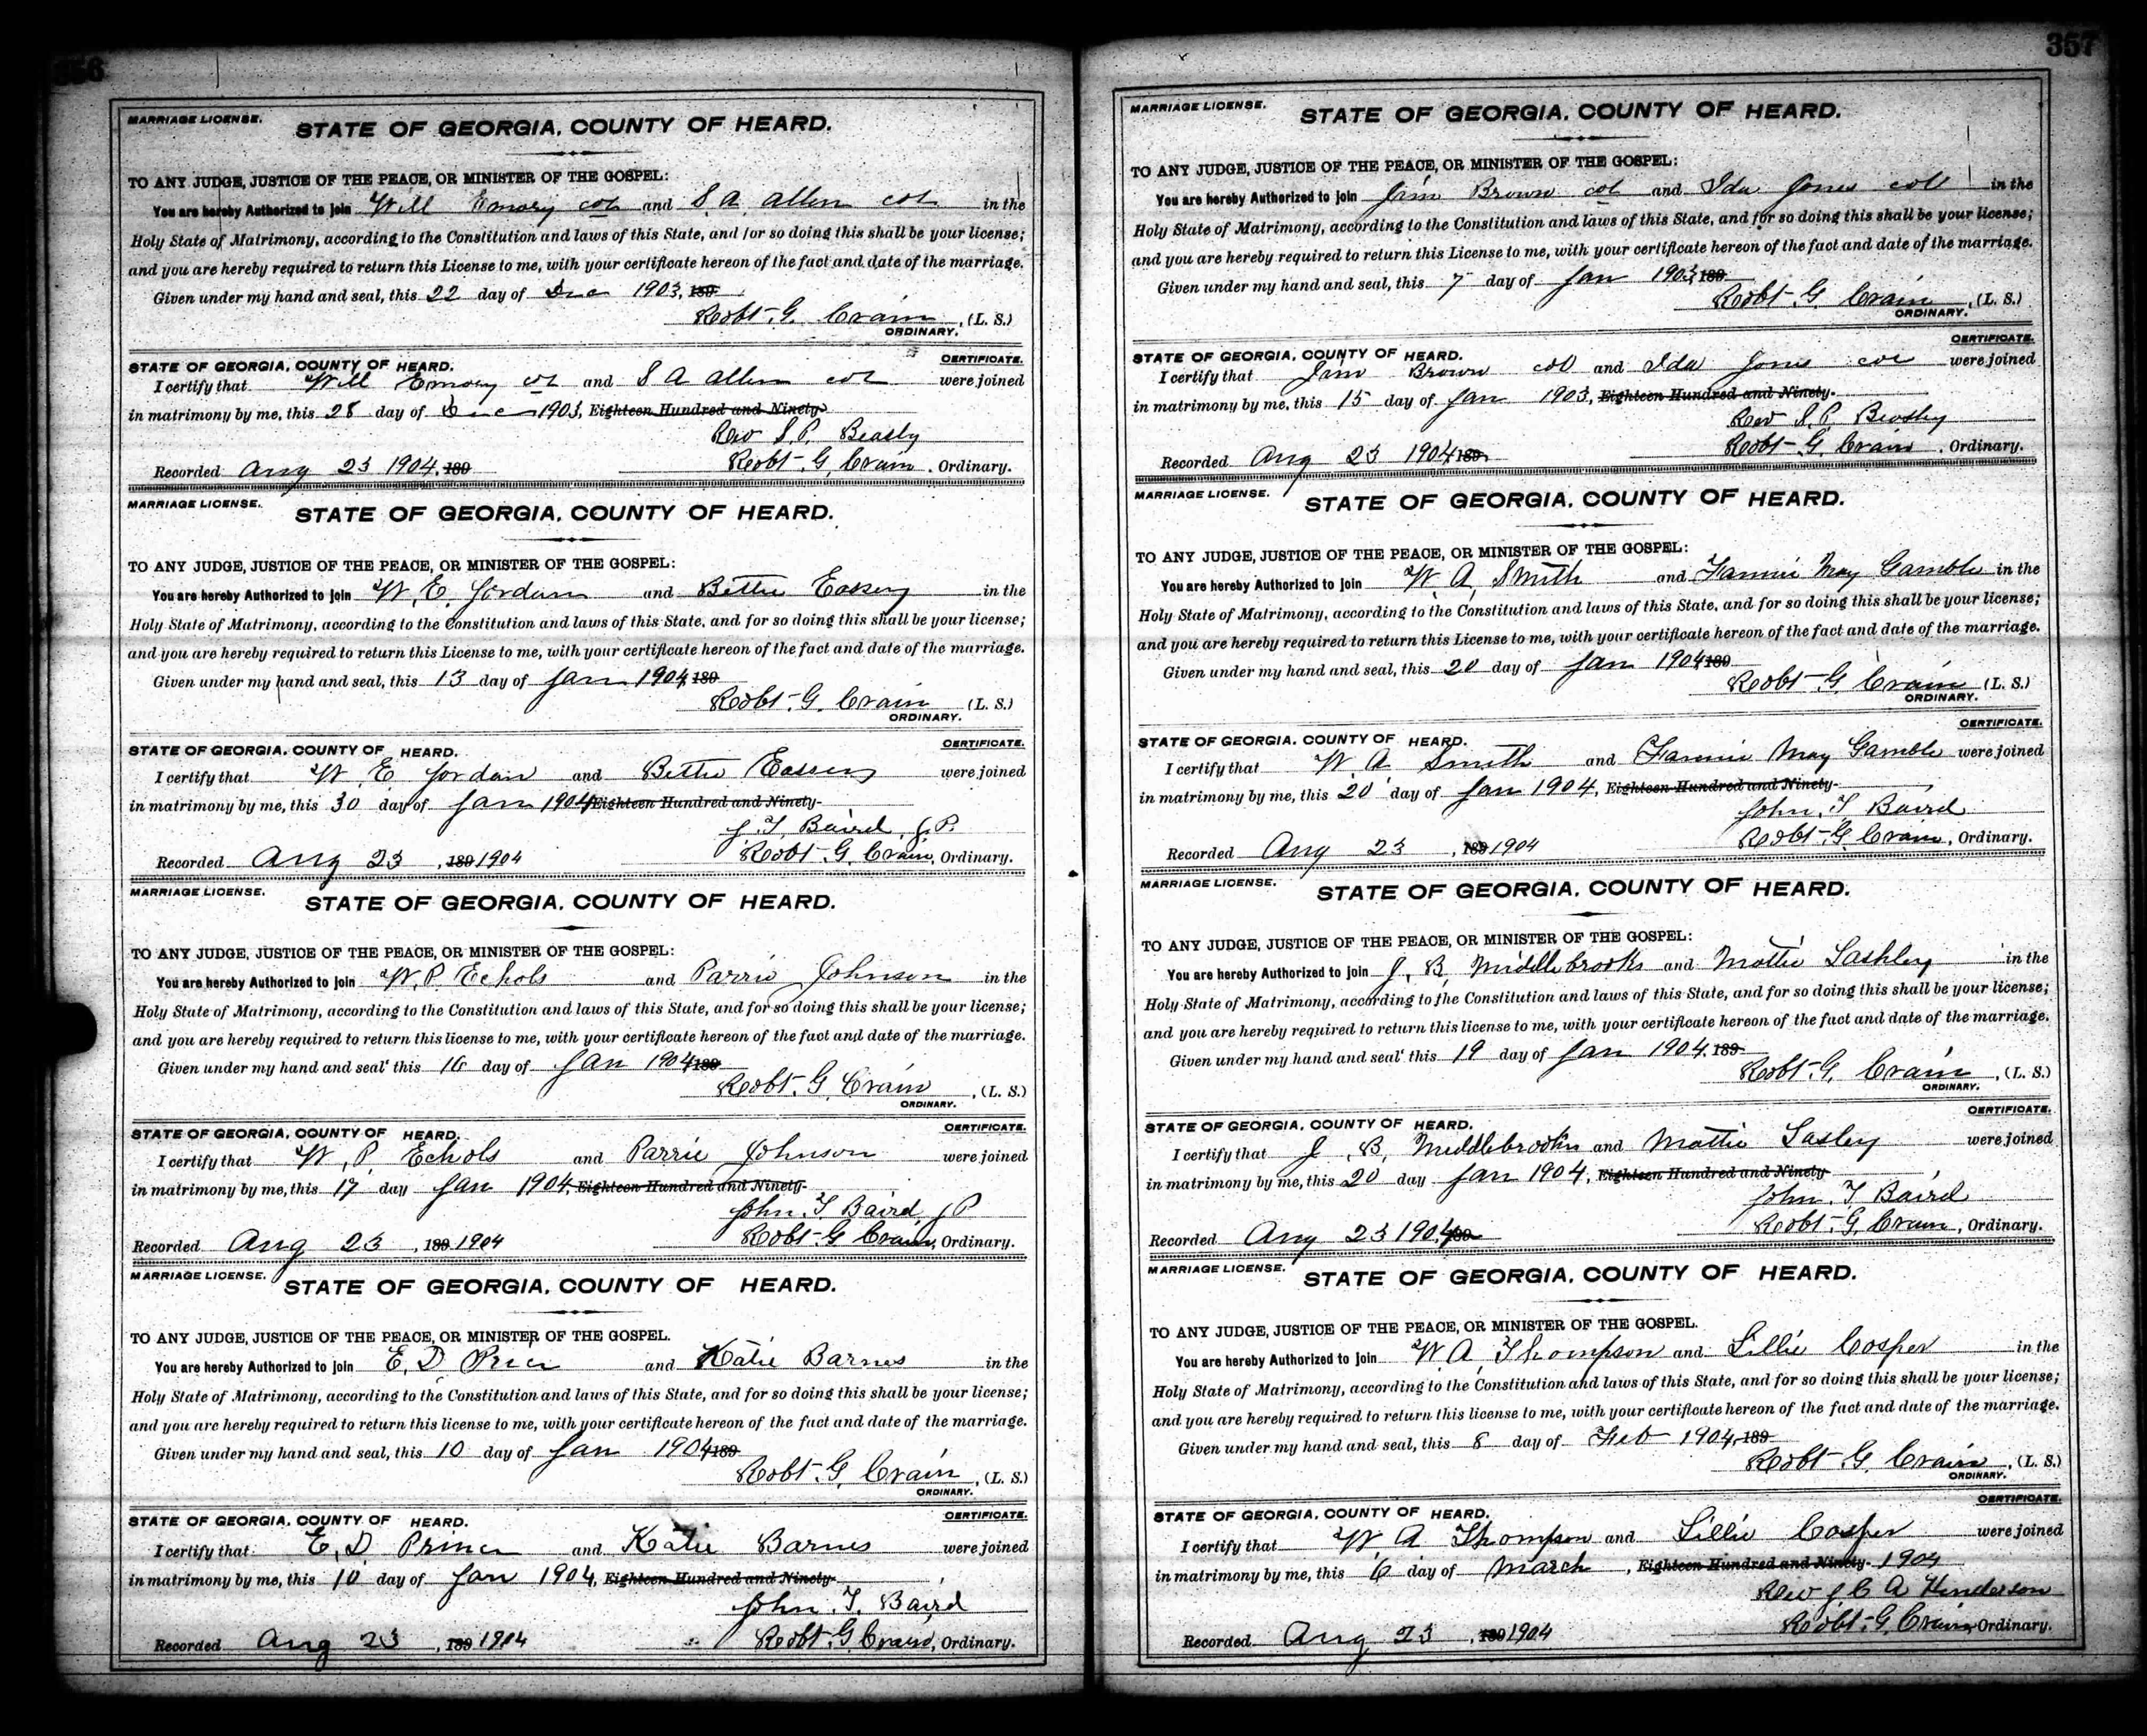 356
MARRIAGE LICENSE.
STATE OF GEORGIA, COUNTY OF HEARD.
TO ANY JUDGE, JUSTICE OF THE PEACE, OR MINISTER OF THE GOSPEL:
You are hereby Authorized to join Will Emory col and S. A. Allen col in the
Holy State of Matrimony, according to the Constitution and laws of this State, and for so doing this shall be your license;
and you are hereby required to return this License to me, with your certificate hereon of the fact and date of the marriage.
Given under my hand and seal, this 22 day of Dec 1903, 189
Robt. G. Crain, (L. S.)
ORDINARY.
CERTIFICATE.
STATE OF GEORGIA, COUNTY OF HEARD.
I certify that Will Emory col and S A Allen col were joined
in matrimony by me, this 28 day of Dec 1903, Eighteen Hundred and Ninety
Rev S. P. Beasly
Recorded Aug 23 1904, 189 Robt. G. Crain, Ordinary.
MARRIAGE LICENSE.
STATE OF GEORGIA, COUNTY OF HEARD.
TO ANY JUDGE, JUSTICE OF THE PEACE, OR MINISTER OF THE GOSPEL:
You are hereby Authorized to join W. E. Jordan and Bettie in the
Holy State of Matrimony, according to the Constitution and laws of this State, and for so doing this shall be your license;
and you are hereby required to return this License to me, with your certificate hereon of the fact and date of the marriage.
Given under my hand and seal, this 13 day of Jan 1904, 189
Robt. G. Crain (L. S.)
ORDINARY.
CERTIFICATE.
STATE OF GEORGIA, COUNTY OF HEARD.
I certify that W. E Jordan and Bettie were joined
in matrimony by me, this 30 day of Jan 1904 Eighteen Hundred and Ninety-
J. T. Baird, J. P.
Recorded Aug 23, 189 1904 Robt. G. Crain, Ordinary.
MARRIAGE LICENSE.
STATE OF GEORGIA, COUNTY OF HEARD.
TO ANY JUDGE, JUSTICE OF THE PEACE, OR MINISTER OF THE GOSPEL:
You are hereby Authorized to join W. P. Echols and Parrie Johnson in the
Holy State of Matrimony, according to the Constitution and laws of this State, and for so doing this shall be your license;
and you are hereby required to return this license to me, with your certificate hereon of the fact and date of the marriage.
Given under my hand and seal this 16 day of Jan 1904 189
Robt. G. Crain, (L. S.)
ORDINARY.
CERTIFICATE.
STATE OF GEORGIA, COUNTY OF HEARD.
I certify that W. P. Echols and Parrie Johnson were joined
in matrimony by me, this 17 day Jan 1904, Eighteen Hundred and Ninety-
John. T. Baird, J P
Recorded Aug 23, 189 1904 Robt. G Crain, Ordinary.
MARRIAGE LICENSE.
STATE OF GEORGIA, COUNTY OF HEARD.
TO ANY JUDGE, JUSTICE OF THE PEACE, OR MINISTER OF THE GOSPEL.
You are hereby Authorized to join E. D and Katie Barnes in the
Holy State of Matrimony, according to the Constitution and laws of this State, and for so doing this shall be your license;
and you are hereby required to return this license to me, with your certificate hereon of the fact and date of the marriage.
Given under my hand and seal, this 10 day of Jan 1904 189
Robt. G. Crain, (L. S.)
ORDINARY.
CERTIFICATE.
STATE OF GEORGIA, COUNTY OF HEARD.
I certify that E. D. Prince and Katie Barnes were joined
in matrimony by me, this 10 day of Jan 1904, Eighteen Hundred and Ninety-
John. T. Baird
Recorded Aug 23, 189 1904 Robt. G. Crain, Ordinary.
357
MARRIAGE LICENSE.
STATE OF GEORGIA, COUNTY OF HEARD.
TO ANY JUDGE, JUSTICE OF THE PEACE, OR MINISTER OF THE GOSPEL:
You are hereby Authorized to join Jim Brown col and Ida Jones col in the
Holy State of Matrimony, according to the Constitution and laws of this State, and for so doing this shall be your license;
and you are hereby required to return this License to me, with your certificate hereon of the fact and date of the marriage.
Given under my hand and seal, this 7 day of Jan 1903, 189
Robt. G. Crain, (L. S.)
ORDINARY.
CERTIFICATE.
STATE OF GEORGIA, COUNTY OF HEARD.
I certify that Jim Brown col and Ida Jones col were joined
in matrimony by me, this 15 day of Jan 1903, Eighteen Hundred and Ninety-
Rev S. P. Beasley
Recorded Aug 23 1904 189 Robt. G. Crain, Ordinary.
MARRIAGE LICENSE.
STATE OF GEORGIA, COUNTY OF HEARD.
TO ANY JUDGE, JUSTICE OF THE PEACE, OR MINISTER OF THE GOSPEL:
You are hereby Authorized to join W. A. Smith and Fannie May Gamble in the
Holy State of Matrimony, according to the Constitution and laws of this State, and for so doing this shall be your license;
and you are hereby required to return this License to me, with your certificate hereon of the fact and date of the marriage.
Given under my hand and seal, this 20 day of Jan 1904 189
Robt. G. Crain (L. S.)
ORDINARY.
CERTIFICATE.
STATE OF GEORGIA, COUNTY OF HEARD.
I certify that W. A Smith and Fannie May Gamble were joined
in matrimony by me, this 20 day of Jan 1904, Eighteen Hundred and Ninety-
John. T Baird
Recorded Aug 23, 189 1904 Robt. G. Crain, Ordinary.
MARRIAGE LICENSE.
STATE OF GEORGIA, COUNTY OF HEARD.
TO ANY JUDGE, JUSTICE OF THE PEACE, OR MINISTER OF THE GOSPEL:
You are hereby Authorized to join J. B. Middlebrooks and Mattie Lashley in the
Holy State of Matrimony, according to the Constitution and laws of this State, and for so doing this shall be your license;
and you are hereby required to return this license to me, with your certificate hereon of the fact and date of the marriage.
Given under my hand and seal this 19 day of Jan 1904. 189
Robt. G. Crain, (L. S.)
ORDINARY.
CERTIFICATE.
STATE OF GEORGIA, COUNTY OF HEARD.
I certify that J. B. Middlebrooks and Mattie Lasley were joined
in matrimony by me, this 20 day Jan 1904, Eighteen Hundred and Ninety
John. T Baird
Recorded Aug 23 1904 189 Robt. G. Crain, Ordinary.
MARRIAGE LICENSE.
STATE OF GEORGIA, COUNTY OF HEARD.
TO ANY JUDGE, JUSTICE OF THE PEACE, OR MINISTER OF THE GOSPEL.
You are hereby Authorized to join W. A. Thompson and Lillie Cosper in the
Holy State of Matrimony, according to the Constitution and laws of this State, and for so doing this shall be your license;
and you are hereby required to return this license to me, with your certificate hereon of the fact and date of the marriage.
Given under my hand and seal, this 8 day of Feb 1904, 189
Robt. G. Crain, (L. S.)
ORDINARY.
CERTIFICATE.
STATE OF GEORGIA, COUNTY OF HEARD.
I certify that W. A Thompson and Lillie Cosper were joined
in matrimony by me, this 6 day of March, Eighteen Hundred and Ninety- 1904
Rev J. C A Henderson
Recorded Aug 23, 189 1904 Robt. G. Crain, Ordinary.